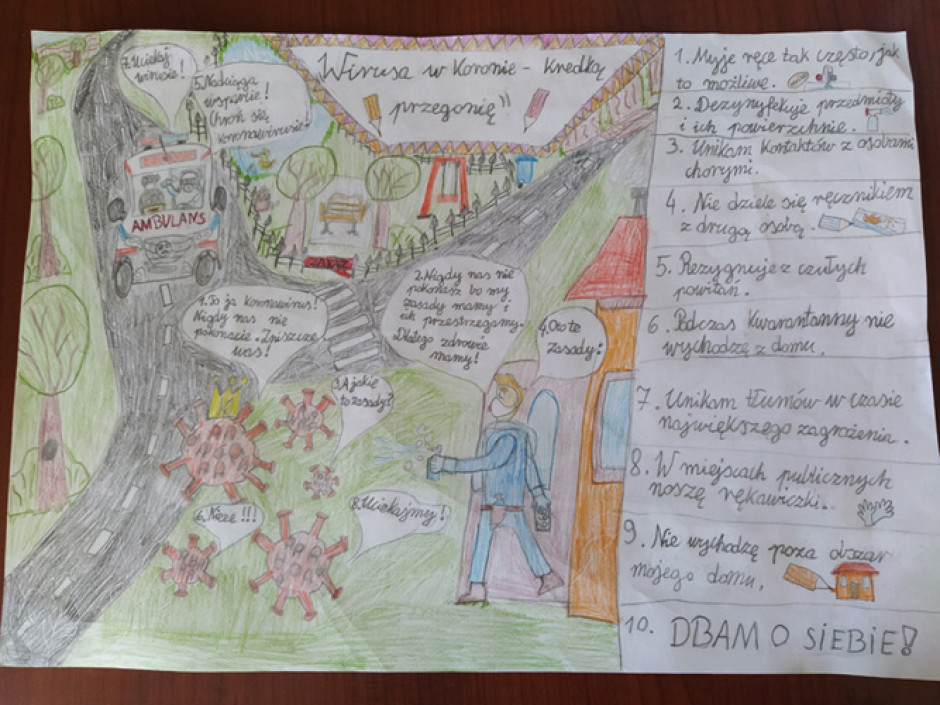 Wirusa w Koronie - Kredką
przegonię"
7. Uciekaj
wirusie!
5. Nadciąga
wsparcie!
Chroń się
koronawirusie!
AMBULANS
1. To ja koronawirus!
Nigdy nas nie
pokonacie. Zniszczę
was!
2. Nigdy nas nie
pokonasz bo my
zasady mamy i
ich przestrzegamy.
Dlatego zdrowie
mamy!
3. A jakie
to zasady?
4. Oto te
zasady:
6. Nieee!!!
8. Uciekajmy!
1. Myję ręce tak często, jak
to możliwe.
2. Dezynfekuję przedmioty
i ich powierzchnie.
3. Unikam kontaktów z osobami
chorymi.
4. Nie dziele się ręcznikiem
z drugą osobą.
5. Rezygnuję z czułych
powitań.
6. Podczas kwarantanny nie
wychodzę z domu.
7. Unikam tłumów w czasie
największego zagrożenia.
8. W miejscach publicznych
noszę rękawiczki.
9. Nie wychodzę poza obszar
mojego domu.
10. DBAM O SIEBIE!